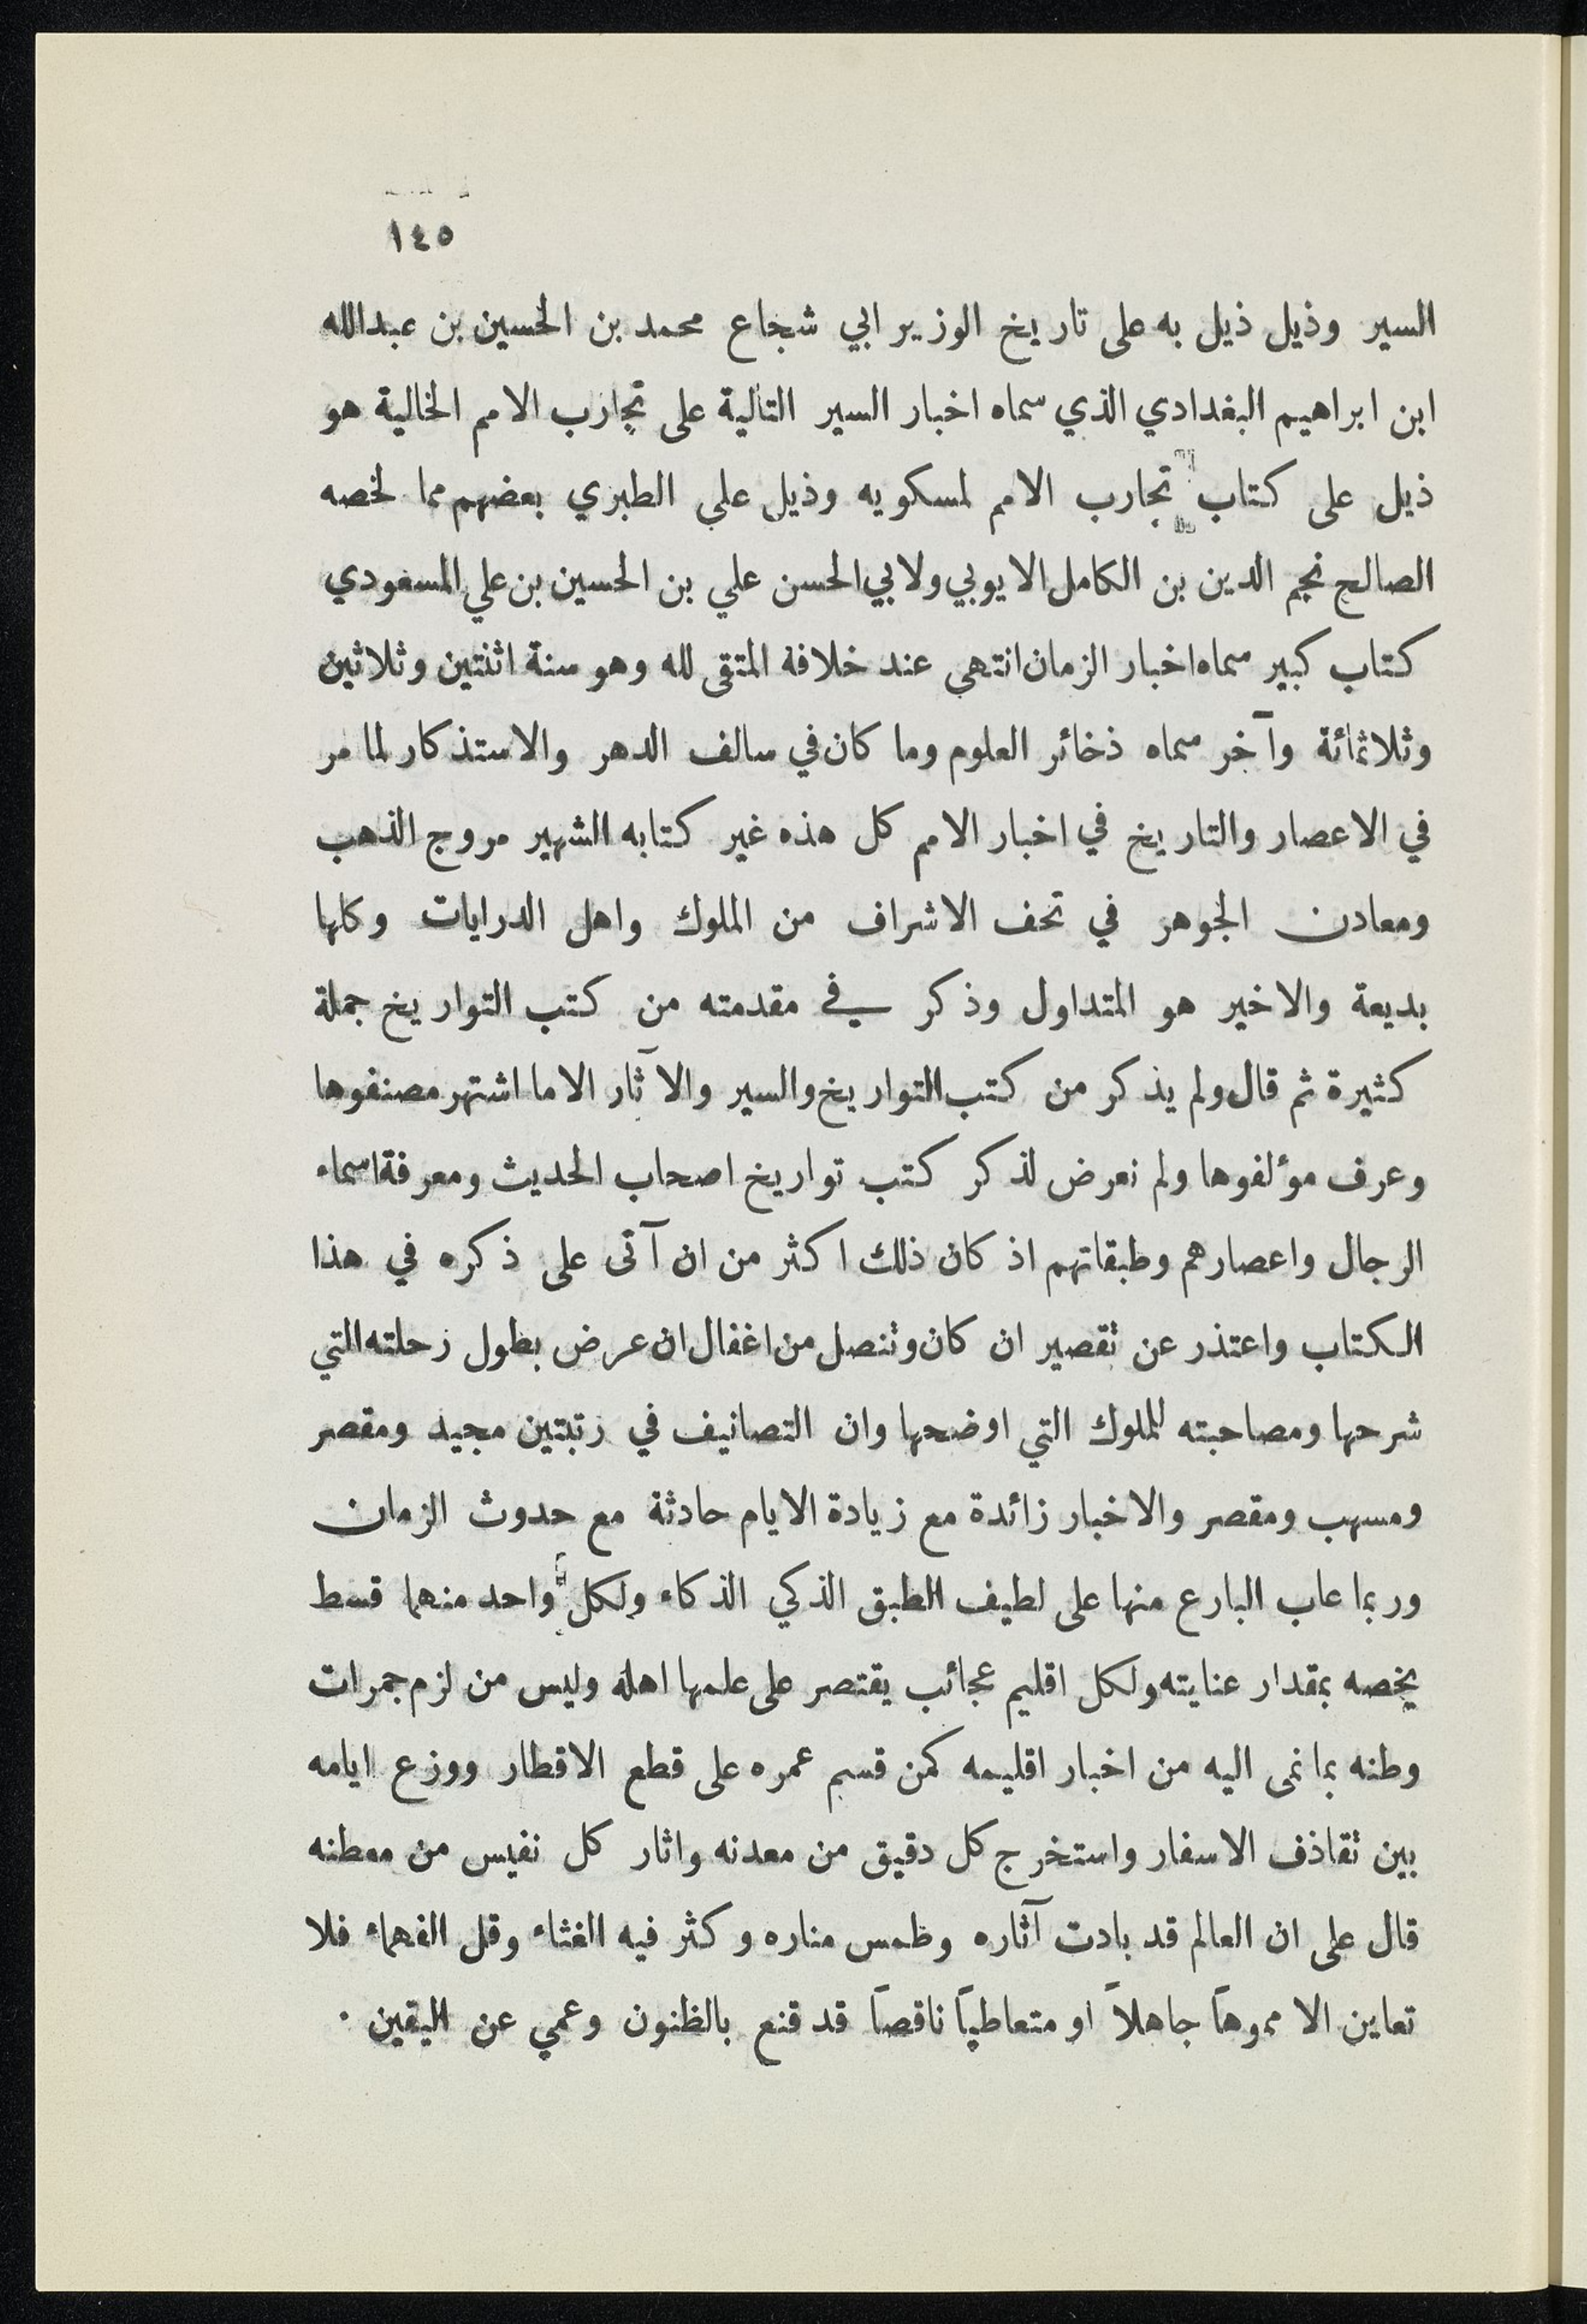 ١٤٥
السير وذيل ذيل به على تاريخ الوزير ابي شجاع محمد بن الحسين بن عبدالله
ابن ابراهيم البغدادي الذي سماه اخبار السير التالية على تجارب الامم الخالية هو
ذيل على كتاب تجارب الامم لمسكويه وذيل على الطبري بعضهم مما لخصه
الصالح نجم الدين بن الكامل الايوبي ولابي الحسن علي بن الحسين بن علي المسعودي
كتاب كبير سماه اخبار الزمان انتهى عند خلافة المتقى لله وهو سنة اثنتين وثلاثين
وثلاثمائة وآخر سماه ذخائر العلوم وما كان في سالف الدهر والاستذكار لما مر
في الاعصار والتاريخ في اخبار الامم كل هذه غير كتابه الشهير مروج الذهب
ومعادن الجوهر في تحف الاشراف من الملوك واهل الدرايات وكلها
بديعة والاخير هو المتداول وذكر في مقدمته من كتب التواريخ جملة
كثيرة ثم قال ولم يذكر من كتب التواريخ والسير والآثار الا ما اشتهر مصنفوها
وعرف مؤلفوها ولم نعرض لذكر كتب تواريخ اصحاب الحديث ومعرفة اسماء
الرجال واعصارهم وطبقاتهم اذ كان ذلك اكثر من ان آتى على ذكره في هذا
الكتاب واعتذر عن تقصير ان كان وتنصل من اغفال ان عرض بطول رحلته التي
شرحها ومصاحبته للملوك التي اوضحها وان التصانيف في رتبتين مجيد ومقصر
ومسهب ومقصر والاخبار زائدة مع زيادة الايام حادثة مع حدوث الزمان
وربما عاب البارع منها على لطيف الطبق الذكي الذكاء ولكل واحد منهما قسط
يخصه بمقدار عنايته ولكل اقليم عجائب يقتصر على علمها اهله وليس من لزم جمرات
وطنه بما نمى اليه من اخبار اقليمه كمن قسم عمره على قطع الاقطار ووزع ايامه
بين تقاذف الاسفار واستخرج كل دقيق من معدنه واثار كل نفيس من معطنه
قال على ان العالم قد بادت آثاره وطمس مناره وكثر فيه الغثاء وقل الفهماء فلا
تعاين الا مموهاً جاهلاً او متعاطياً ناقصاً قد قنع بالظنون وعمي عن اليقين ·